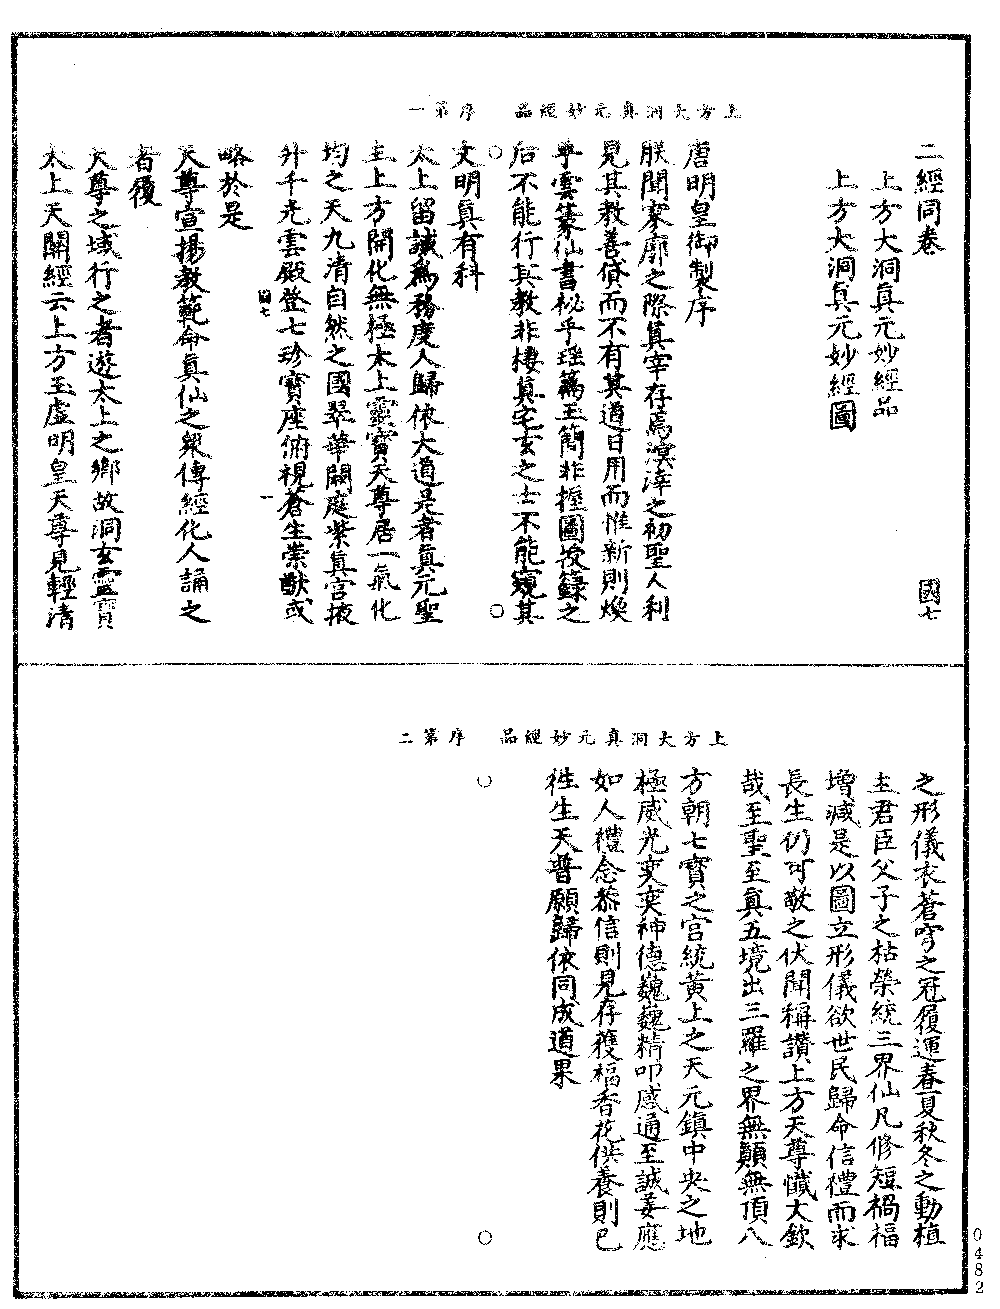 上方大洞真元妙經品　序第一
二經同卷　國七
上方大洞真元妙經品
上方大洞真元妙經圖
唐明皇御製序
朕聞寥廓之際真宰存焉溟涬之初聖人利
見其教善貸而不有其道日用而惟新則煥
乎雲篆仙書祕乎瑤篇玉簡非握圖授籙之
后不能行其教非棲真宅玄之士不能窺其
文明真有科
太上留誡為務度人歸依大道是者真元聖
主上方開化無極太上靈寶天尊居一氣化
均之天九清自然之國翠華闕庭紫真宮掖
升千光雲殿登七珍寶座俯視蒼生崇猷或
國七　一
略於是
天尊宣揚教範命真仙之眾傳經化人誦之
者後
天尊之域行之者遊太上之鄉故洞玄靈寶
太上天關經云上方至虛明皇天尊見輕清
上方大洞真元妙經品　序第二
之形儀衣蒼穹之冠履運春夏秋冬之動植
主君臣父子之枯榮統三界仙凡修短禍福
增減是以圖立形儀欲世民歸命信禮而求
長生仍可敬之伏聞稱讚上方天尊懺大欽
哉至聖至真五境出三羅之界無顛無頂八
方朝七寶之宮統黃上之天元鎮中央之地
極威光奕奕神德巍巍精叩感通至誠妥應
如人禮念恭信則見存獲福香花供養則已
徃生天普願歸依同成道果
0482